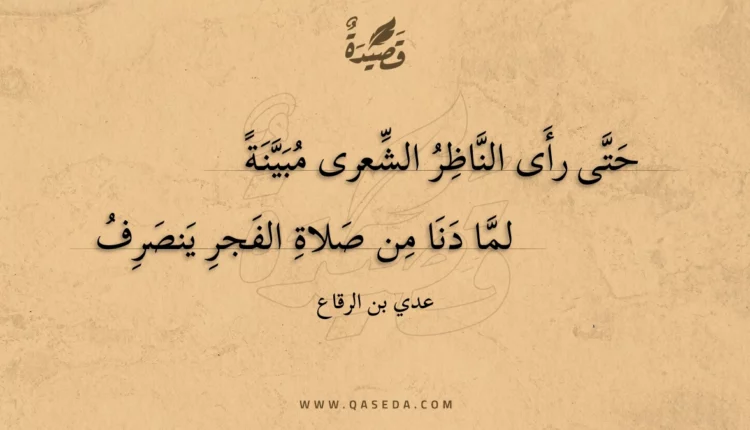 قَصِيْدَةٌ
حَتَّى رأَى النَّاظِرُ الشِّعرى مُبَيَّنَةً
لمَّا دَنَا مِن صَلاةِ الفَجرِ يَنصَرِفُ
عدي بن الرقاع
WWW.QASEDA.COM